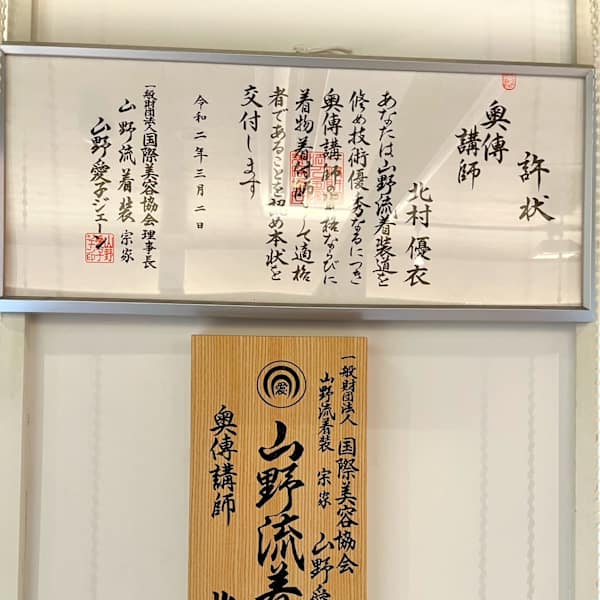 許状
奥傳講師
北村優衣
あなたは山野流着装道を
修め技術優秀なるにつき
奥傳講師の資格ならびに
着物着付師として適格
者であることを認め本状を
交付します
令和二年三月二日
一般財団法人国際美容協会理事長
山野流着装宗家
山野愛子ジェーン
一般財団法人国際美容協会
山野流着装 宗家 山野愛
愛
山野流着
奥傳講師